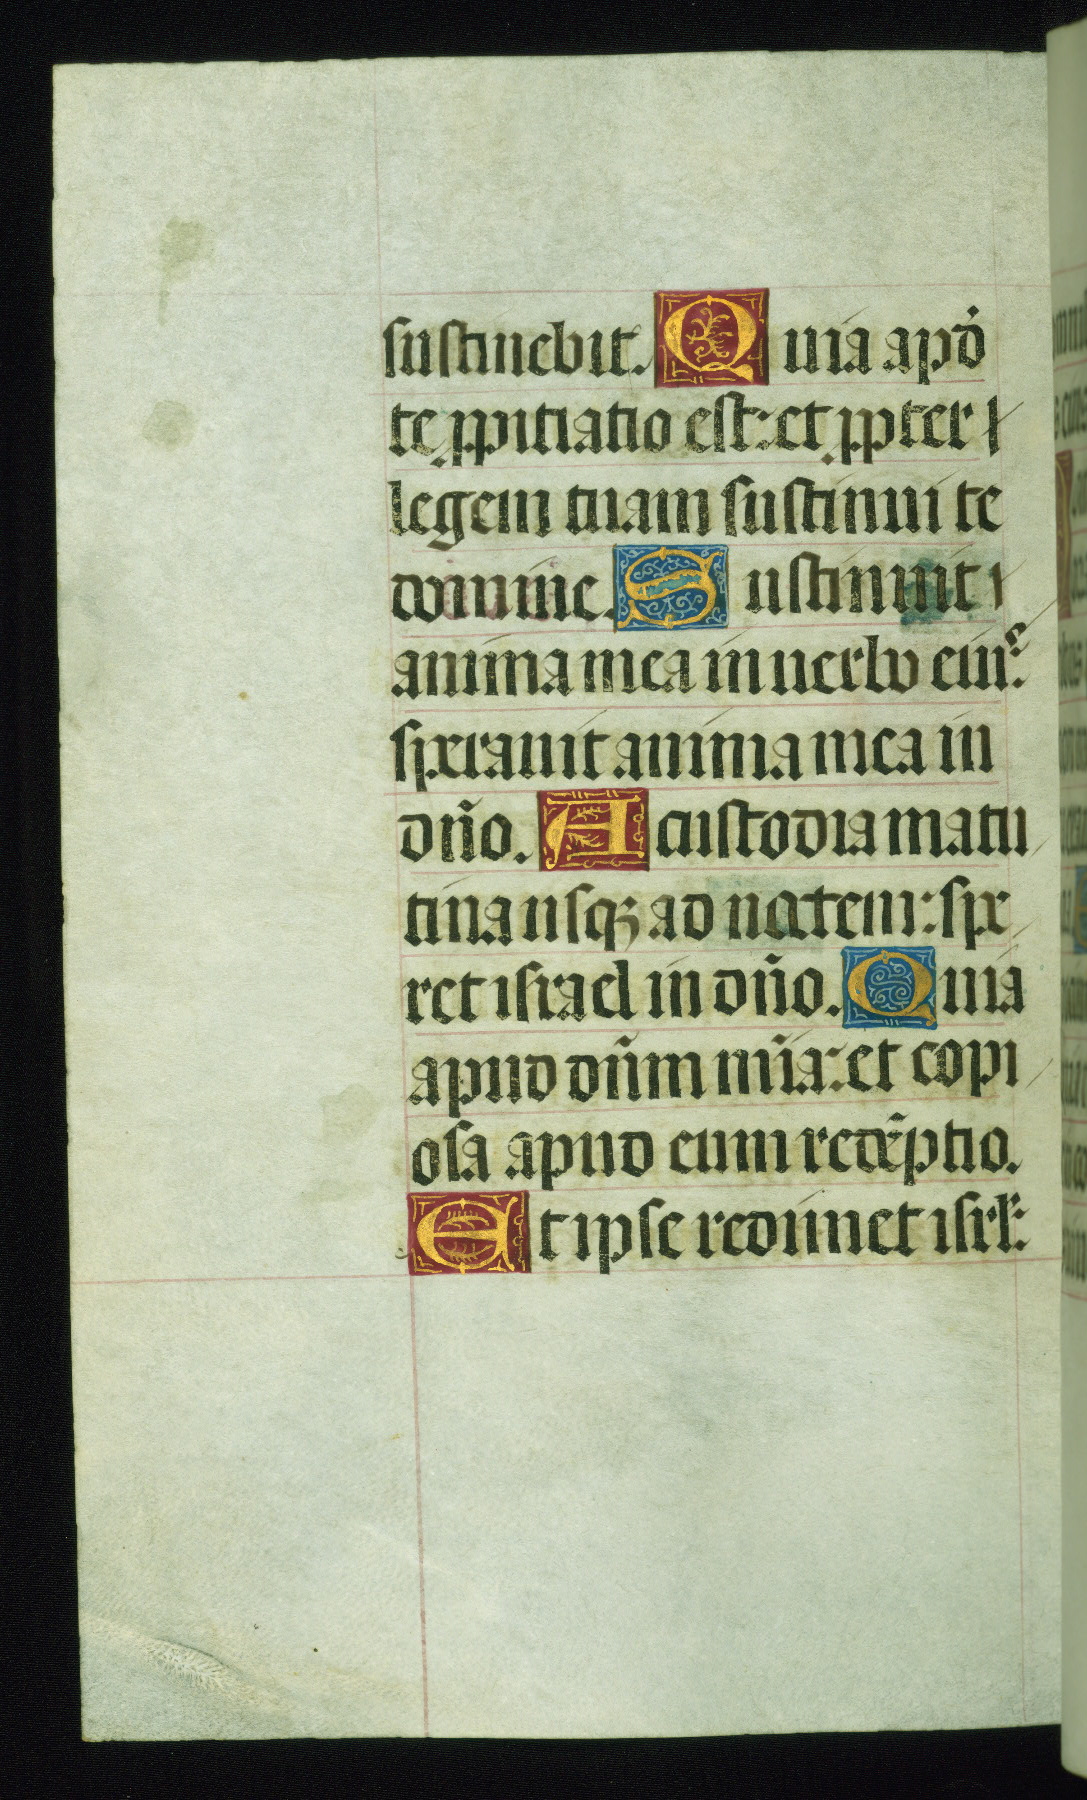 sustinebit. Quia apd̄
te ꝓpitiatio est: et ꝓpter
legem tuam sustinui te
domine. Sustinuit
anima mea in uerbo eiꝰ:
sperauit anima mea in
dn̄o. A custodia matu
tina usqꝫ ad noctem: spe
ret israel in dn̄o. Quia
apud dn̄m mīa: et copi
osa apud eum redēptio.
Et ipse redimet isrl̄: